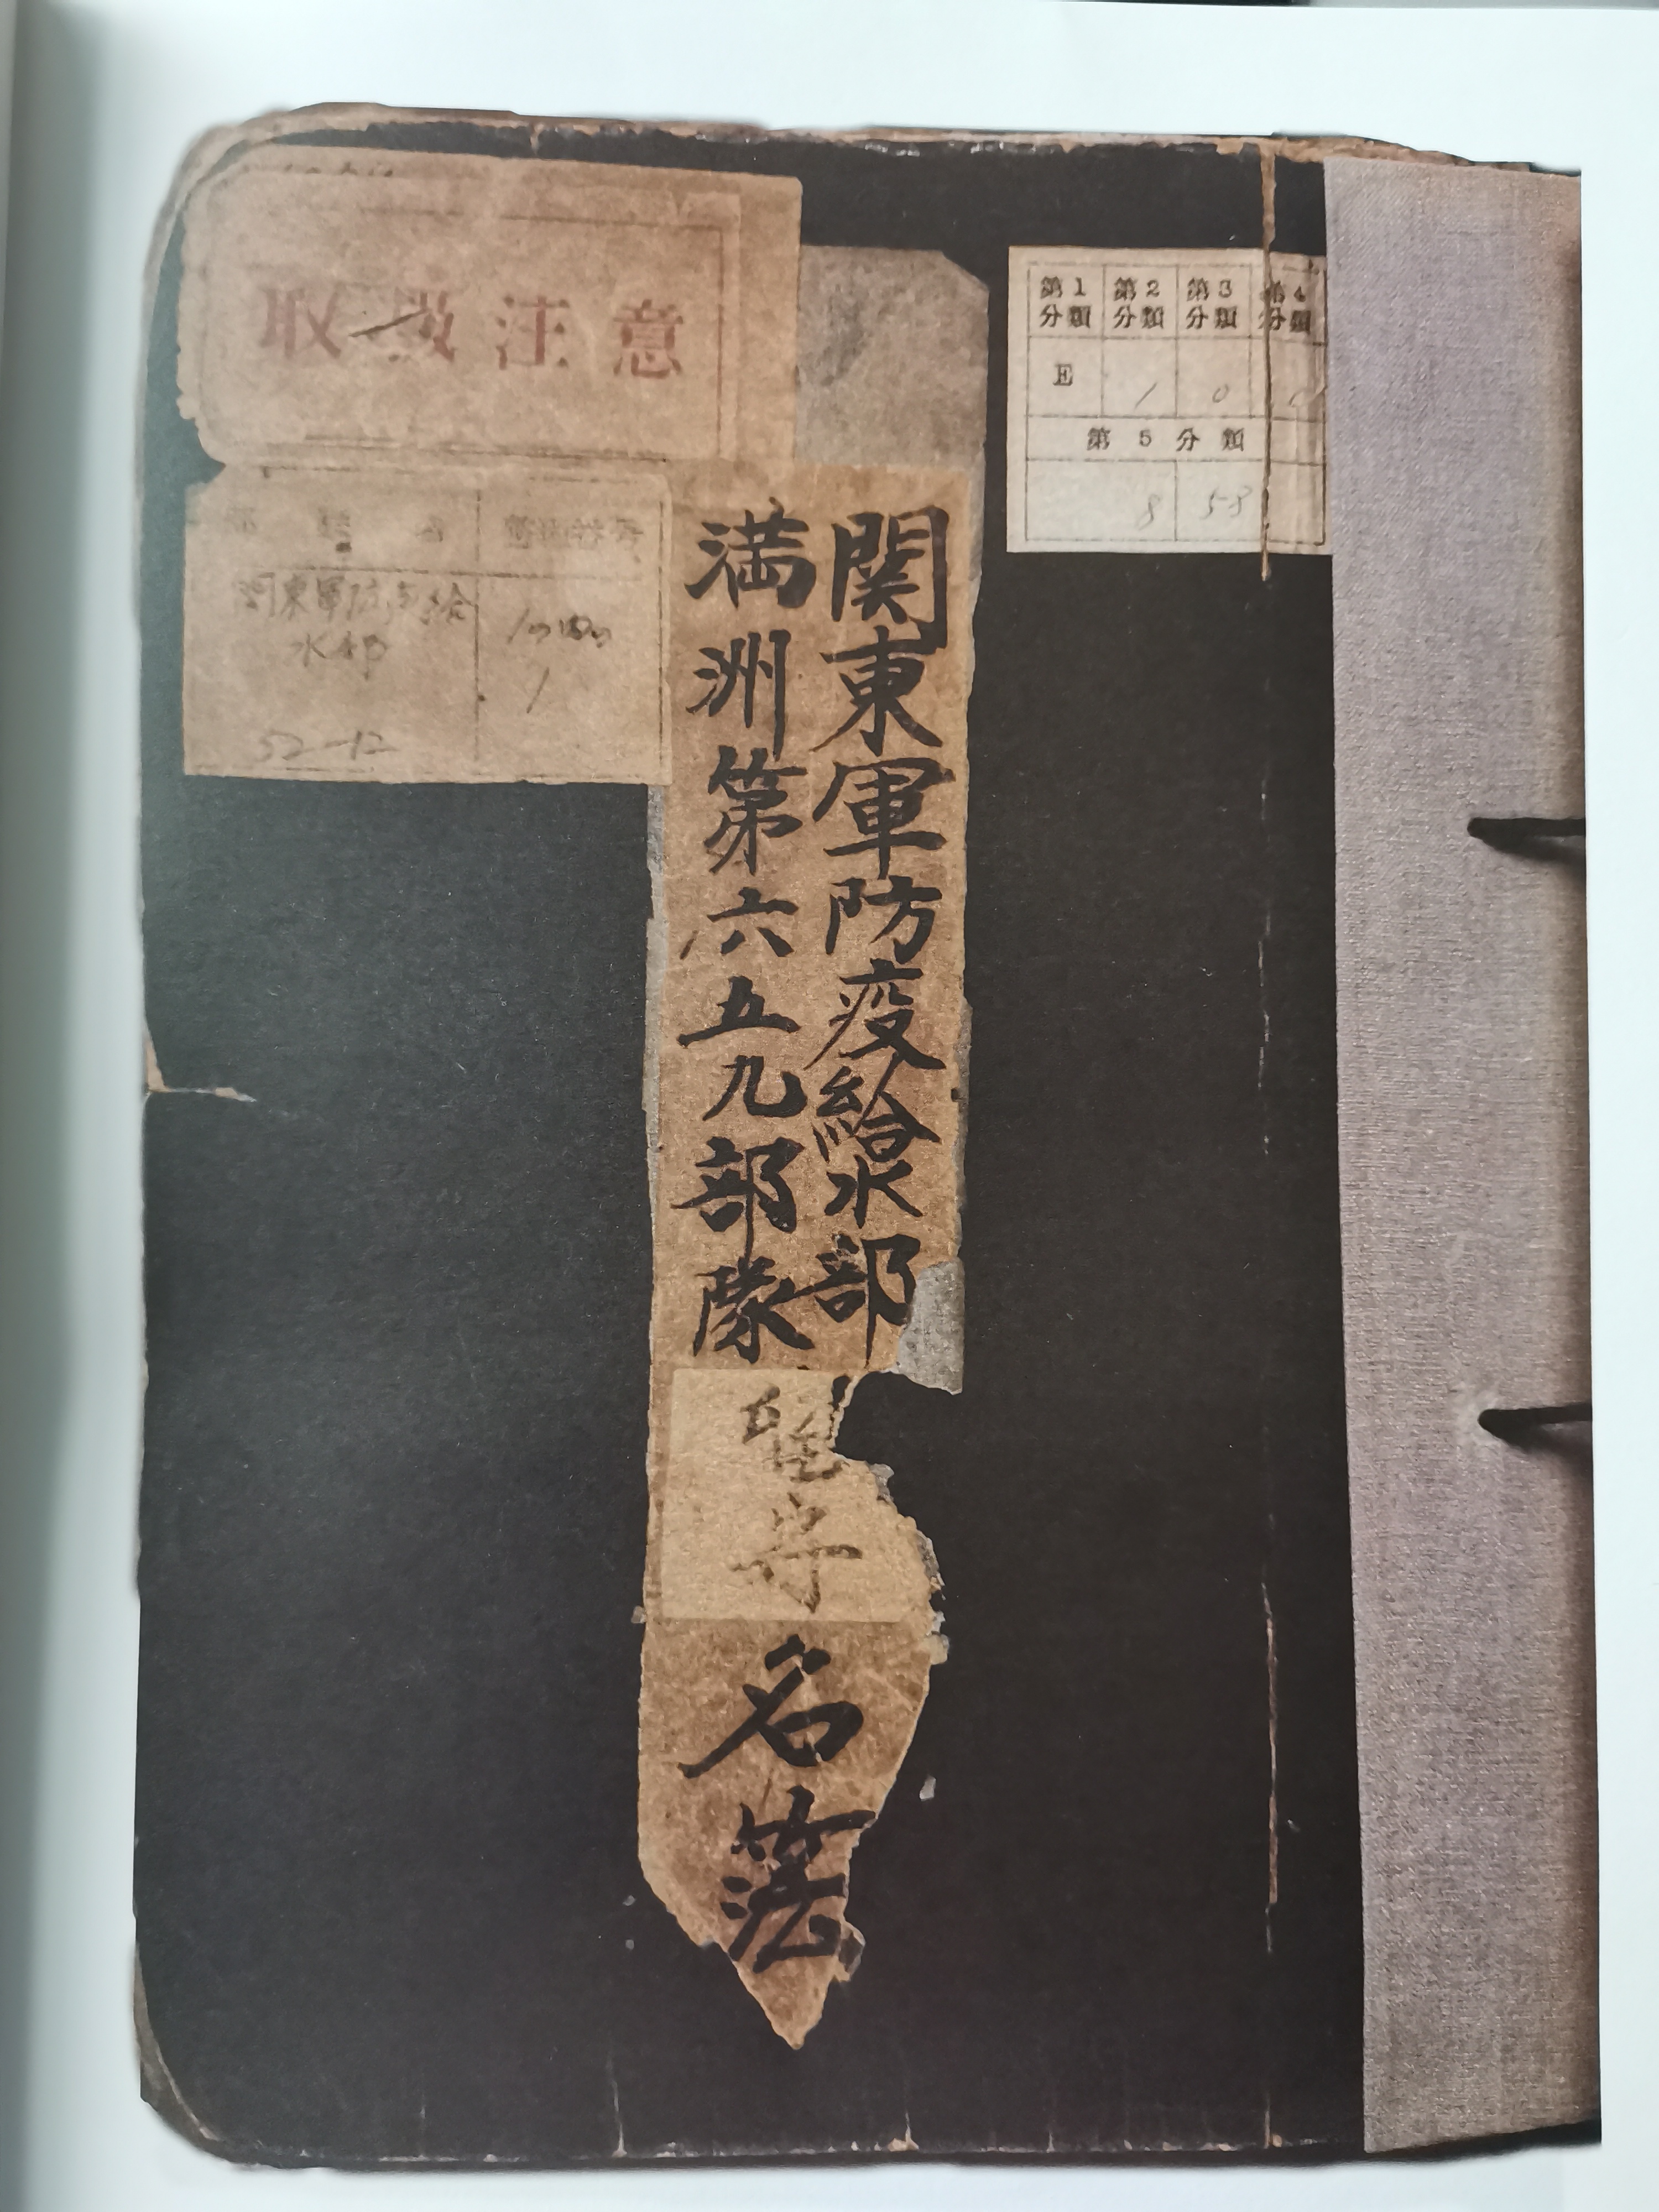 取扱注意
第1分類 第2分類 第3分類 第4分類
E 1 0
第5分類
8 58
部隊名 整理番号
関東軍防疫給
水部
1
52-12
関東軍防疫給水部
満洲第六五九部隊
留守
名簿